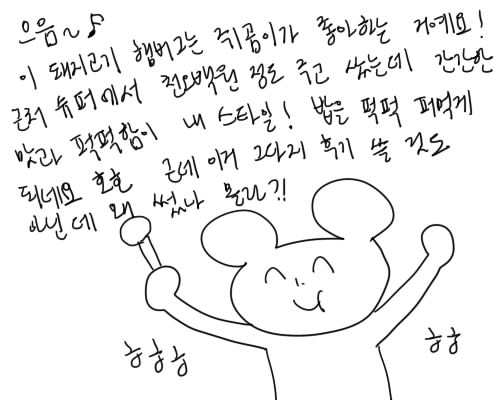 으음~♪
이 돼지고기 햄버그는 쥐곰이가 좋아하는 거예요!
근처 슈퍼에서 천오백원 정도 주고 샀는데 간간한
맛과 퍽퍽함이 내 스타일! 밥을 퍽퍽 퍼먹게
되네요 호호 근데 이거 그다지 후기 쓸 것도
아닌데 왜 썼나 몰라?!
ㅎㅎㅎ
ㅎㅎ